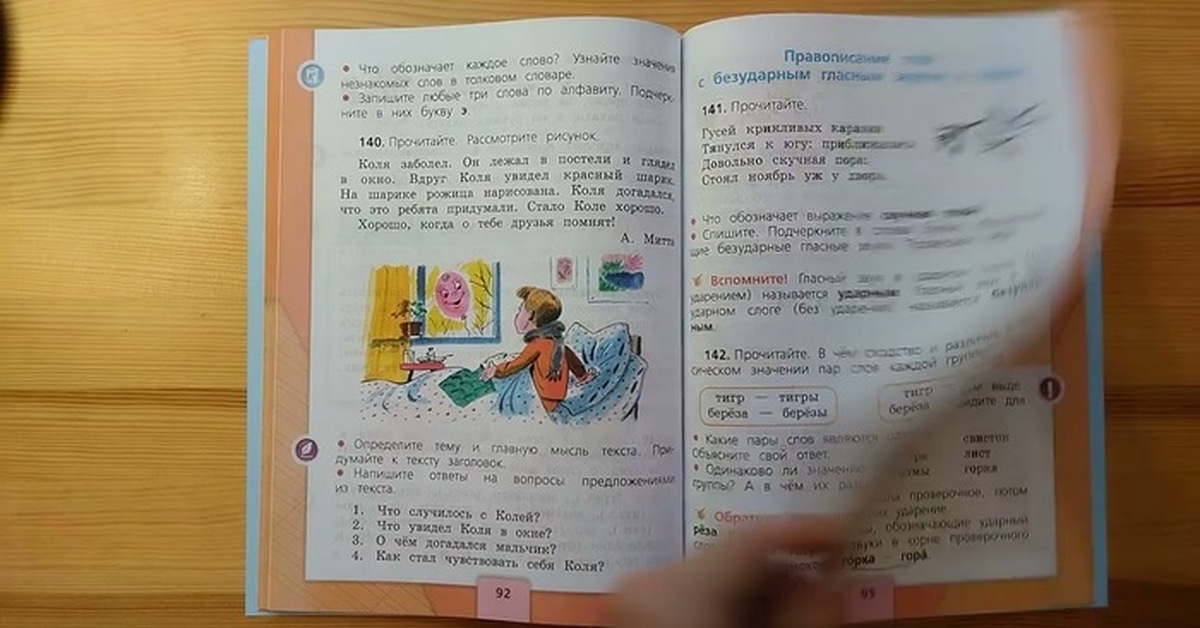 • Что обозначает каждое слово? Узнайте значения
незнакомых слов в толковом словаре.
• Запишите любые три слова по алфавиту. Подчерк-
ните в них букву э.
140. Прочитайте. Рассмотрите рисунок.
Коля заболел. Он лежал в постели и глядел
в окно. Вдруг Коля увидел красный шарик.
На шарике рожица нарисована. Коля догадался,
что это ребята придумали. Стало Коле хорошо.
Хорошо, когда о тебе друзья помнят!
А. Митта
• Определите тему и главную мысль текста. При-
думайте к тексту заголовок.
• Напишите ответы на вопросы предложениями
из текста.
1. Что случилось с Колей?
2. Что увидел Коля в окне?
3. О чём догадался мальчик?
4. Как стал чувствовать себя Коля?
92
Правописание
с безударным гласным
141. Прочитайте.
Гусей крикливых караван
Тянулся к югу: приближалась
Довольно скучная пора:
Стоял ноябрь уж у двора.
• Что обозначает выражение
• Спишите. Подчеркните в
щие безударные гласные
Вспомните! Гласный
ударением) называется ударным.
ударном слоге (без ударения) называется
ным.
142. Прочитайте. В чём сходство и различие в
ческом значении пар слов каждой группы?
тигр — тигры
берёза — берёзы
тигр
берёза
• Какие пары слов являются
Объясните свой ответ.
• Одинаково ли значение
группы? А в чём их
свисток
лист
горка
проверочное, потом
ударение.
обозначающие ударный
звуки в корне проверочного
горка — гора.
95